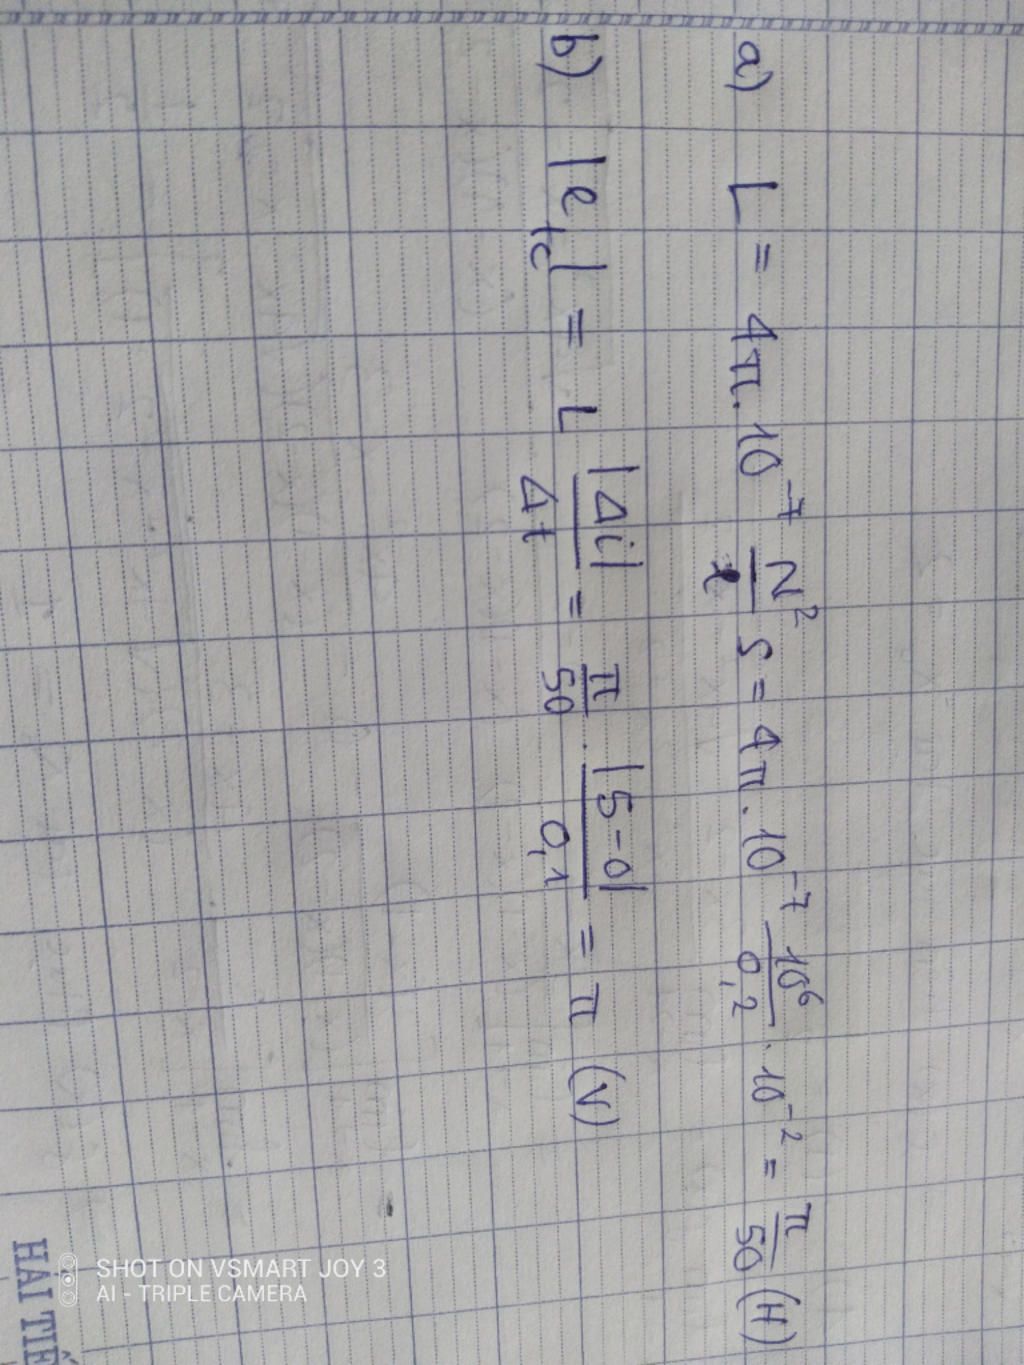 a) L = 4π.10⁻⁷ N²/ℓ S = 4π.10⁻⁷ 10⁶/0,2 . 10⁻² = π/50 (H)
b) |e_tc| = L |Δi|/Δt = π/50 . |5-0|/0,1 = π (V)
SHOT ON VSMART JOY 3
AI - TRIPLE CAMERA
HẢI TIẾ